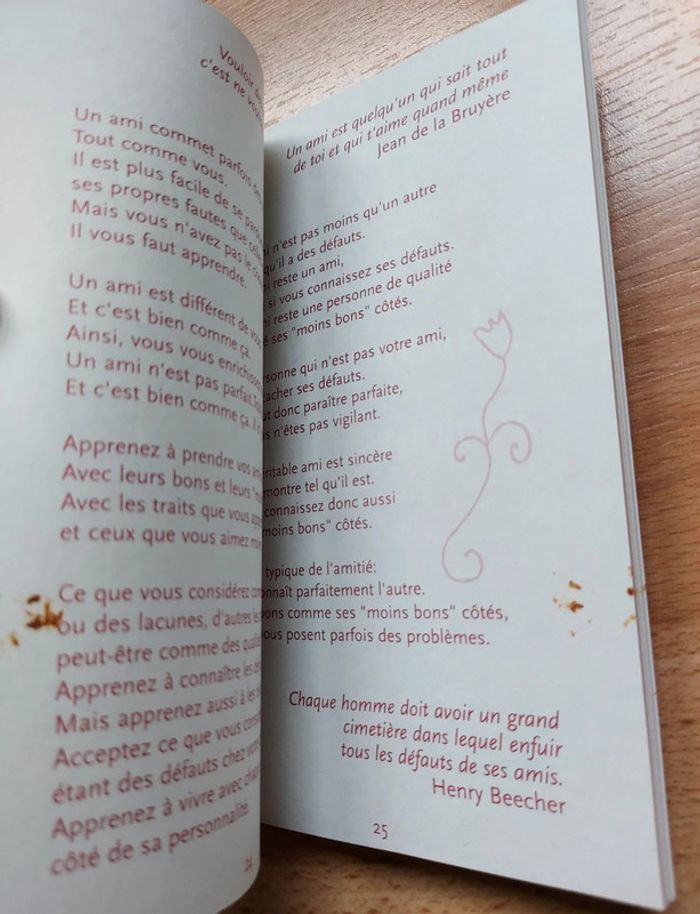 Vouloir
c'est ne
Un ami commet parfois
Tout comme vous.
Il est plus facile de se
ses propres fautes que
Mais vous n'avez pas le
Il vous faut apprendre.
Un ami est différent de
Et c'est bien comme ça.
Ainsi, vous vous
Un ami n'est pas parfait.
Et c'est bien comme ça.
Apprenez à prendre vos
Avec leurs bons et leurs
Avec les traits que vous
et ceux que vous aimez
Ce que vous considérez
ou des lacunes, d'autres
peut-être comme des
Apprenez à connaître les
Mais apprenez aussi à les
Acceptez ce que vous
étant des défauts chez
Apprenez à vivre avec
côté de sa personnalité.
24
Un ami est quelqu'un qui sait tout
de toi et qui t'aime quand même
Jean de la Bruyère
n'est pas moins qu'un autre
qu'il a des défauts.
reste un ami,
si vous connaissez ses défauts.
reste une personne de qualité
ses "moins bons" côtés.
qui n'est pas votre ami,
cacher ses défauts.
donc paraître parfaite,
n'êtes pas vigilant.
ami est sincère
montre tel qu'il est.
connaissez donc aussi
"moins bons" côtés.
typique de l'amitié:
parfaitement l'autre.
comme ses "moins bons" côtés,
posent parfois des problèmes.
Chaque homme doit avoir un grand
cimetière dans lequel enfuir
tous les défauts de ses amis.
Henry Beecher
25